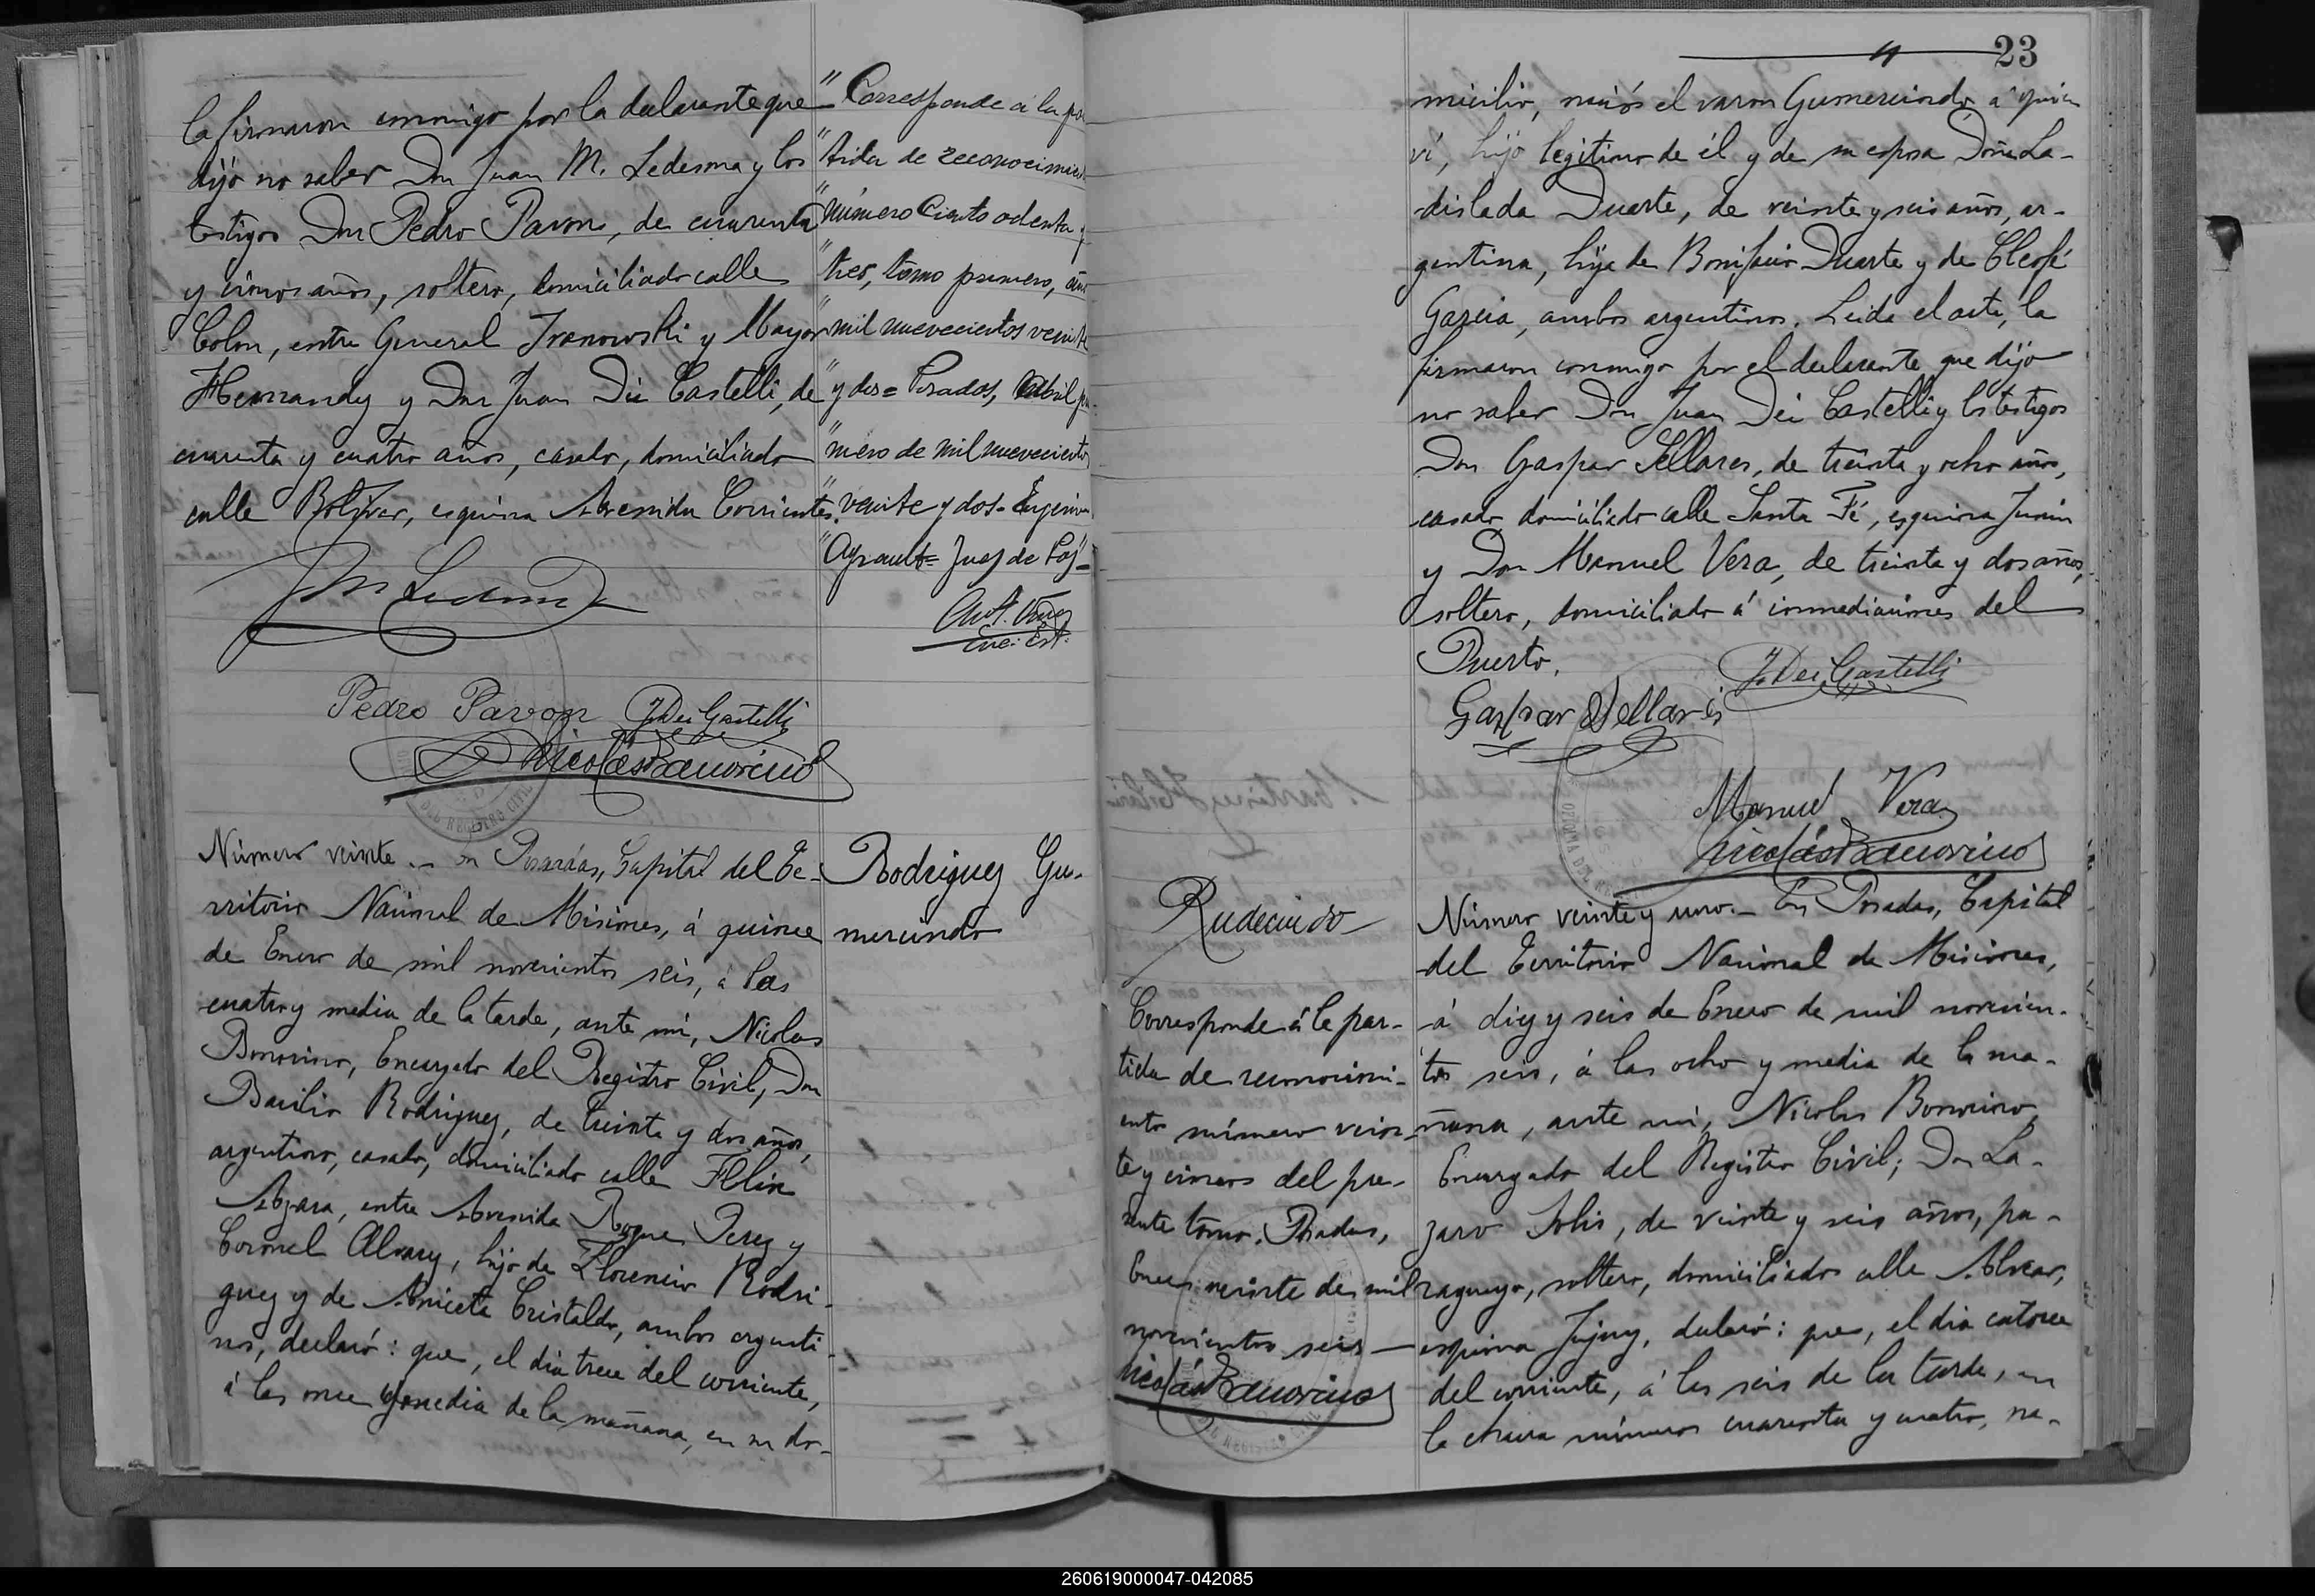 la firmaron conmigo por la declarante que
dijo no saber Don Juan M. Ledesma y los
testigos Don Pedro Pavon, de cuarenta
y cinco años, soltero, domiciliado calle
Colon, entre General Ivanowski y Mayor
Hernandez y Don Juan Dei Castelli, de
cuarenta y cuatro años, casado, domiciliado
calle Bolivar, esquina Avenida Corrientes.
Pedro Pavon J. Dei Castelli
Nicolás Bonorino
" Corresponde á la par
" tida de reconocimien
" número Ciento ochenta y
" tres, tomo primero, año
" mil nuevecientos veinte
" y dos = Posadas, Abril pri
" mero de mil nuevecientos
" veinte y dos =
" Juez de Paz =
Enc. Est.
Número veinte. — En Posadas, Capital del Te-
rritorio Nacional de Misiones, á quince
de Enero de mil novecientos seis, á las
cuatro y media de la tarde, ante mi, Nicolas
Bonorino, Encargado del Registro Civil, Don
Basilio Rodriguez, de treinta y dos años,
argentino, casado, domiciliado calle Felix
Azara, entre Avenida Roque Perez y
Coronel Alvarez, hijo de Florencio Rodri-
guez y de Aniceta Cristaldo, ambos argenti-
nos, declaró: que, el dia trece del corriente,
á las once y media de la mañana, en su do-
Rodriguez Gu-
mercindo
23
micilio, nació el varon Gumercindo á quien
ví, hijo legitimo de él y de su esposa Doña La-
dislada Duarte, de veinte y seis años, ar-
gentina, hija de Bonifacio Duarte y de Cleofé
Garcia, ambos argentinos. Leida el acta, la
firmaron conmigo por el declarante que dijo
no saber Don Juan Dei Castelli y los testigos
Don Gaspar Sellares, de treinta y ocho años,
casado, domiciliado calle Santa Fé, esquina Junin
y Don Manuel Vera, de treinta y dos años,
soltero, domiciliado á inmediaciones del
Puerto.
J. Dei Castelli
Gaspar Sellares
Manuel Vera
Nicolás Bonorino
Rudecindo
Corresponde á la par-
tida de reconocimi-
ento número vein-
te y cinco del pre-
sente tomo. Posadas,
Enero veinte de mil
novecientos seis —
Nicolás Bonorino
Número veinte y uno. — En Posadas, Capital
del Territorio Nacional de Misiones,
á diez y seis de Enero de mil novecien-
tos seis, á las ocho y media de la ma-
ñana, ante mi, Nicolas Bonorino,
Encargado del Registro Civil; Don La-
zaro Solis, de veinte y seis años, pa-
raguayo, soltero, domiciliado calle Alvear,
esquina Jujuy, declaró: que, el dia catorce
del corriente, á las seis de la tarde, en
la chacra número cuarenta y cuatro, na-
260619000047-042085